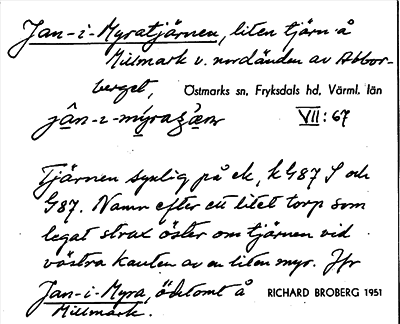 Jan-i-Myratjärnen, liten tjärn å
Millmark v. nordänden av Abbor-
berget, Östmarks sn, Fryksdals hd, Värml. län
VII: 67
Tjärnen synlig på ek, k G87 S och
G87. Namn efter ett litet torp som
legat strax öster om tjärnen vid
västra kanten av en liten myr. Jfr
Jan-i-Myra, ödetomt å RICHARD BROBERG 1951
Millmark.